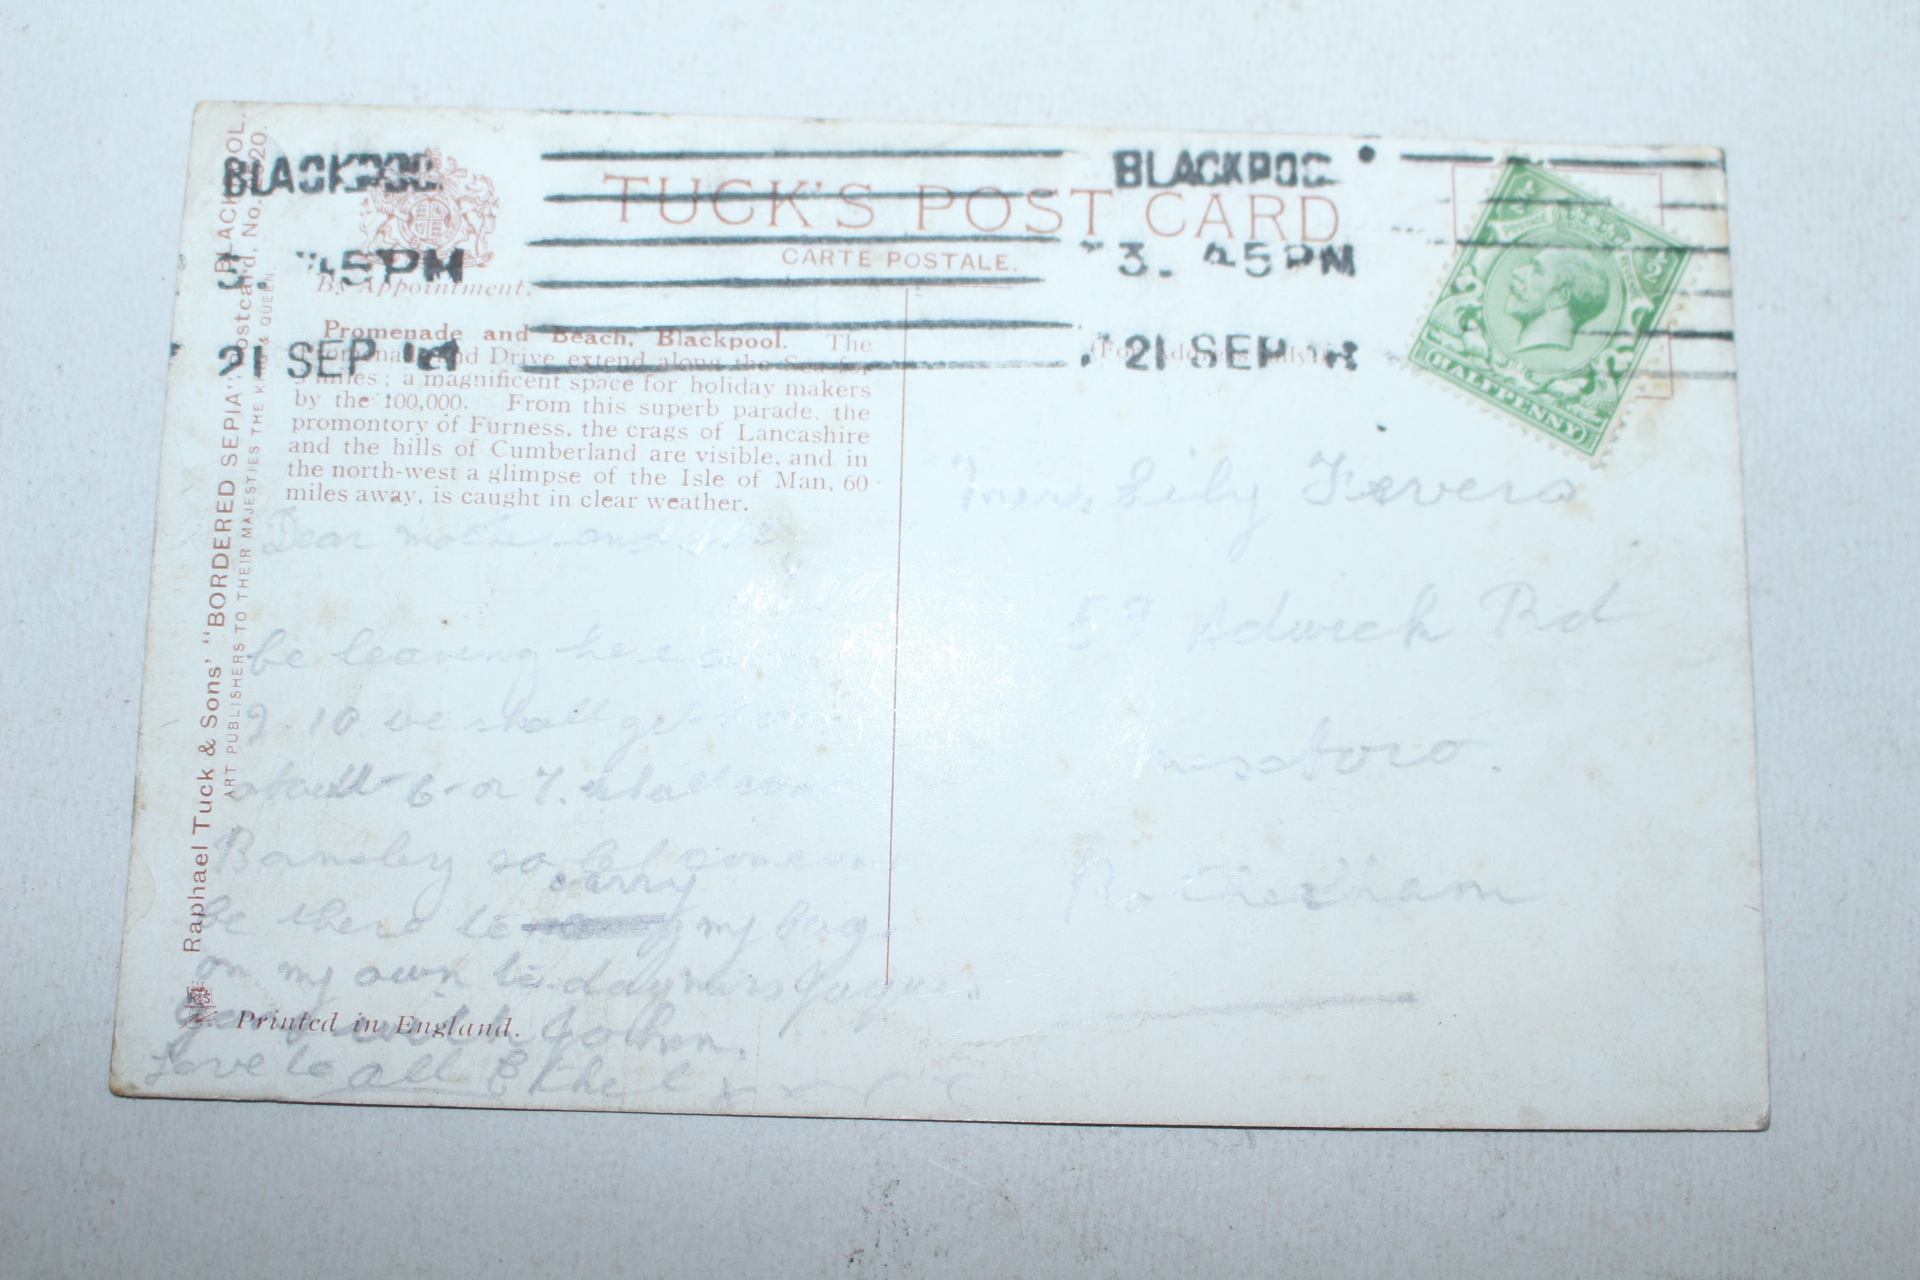 BLACKPOOL.
Raphael Tuck & Sons' "BORDERED SEPIA" Postcard, No.
ART PUBLISHERS TO THEIR MAJESTIES THE KING & QUEEN.
BLACKPOO
3. 45PM
21 SEP
TUCK'S POST CARD
CARTE POSTALE.
By Appointment.
BLACKPOO
3. 45PM
21 SEP
HALFPENNY
Promenade and Beach, Blackpool. The
Promenade and Drive extend along the Sea for
miles; a magnificent space for holiday makers
by the 100,000. From this superb parade, the
promontory of Furness, the crags of Lancashire
and the hills of Cumberland are visible, and in
the north-west a glimpse of the Isle of Man, 60
miles away, is caught in clear weather.
(For Address only)
Dear mother and all
be leaving here
10 we shall get
about 6- or 7. shall
Barnsley so let someone
be there to carry my bag.
on my own to day mrs Jaques
with John.
Love to all Ethel x
Printed in England.
Miss. Lily
59 Adwick Rd
Rotherham